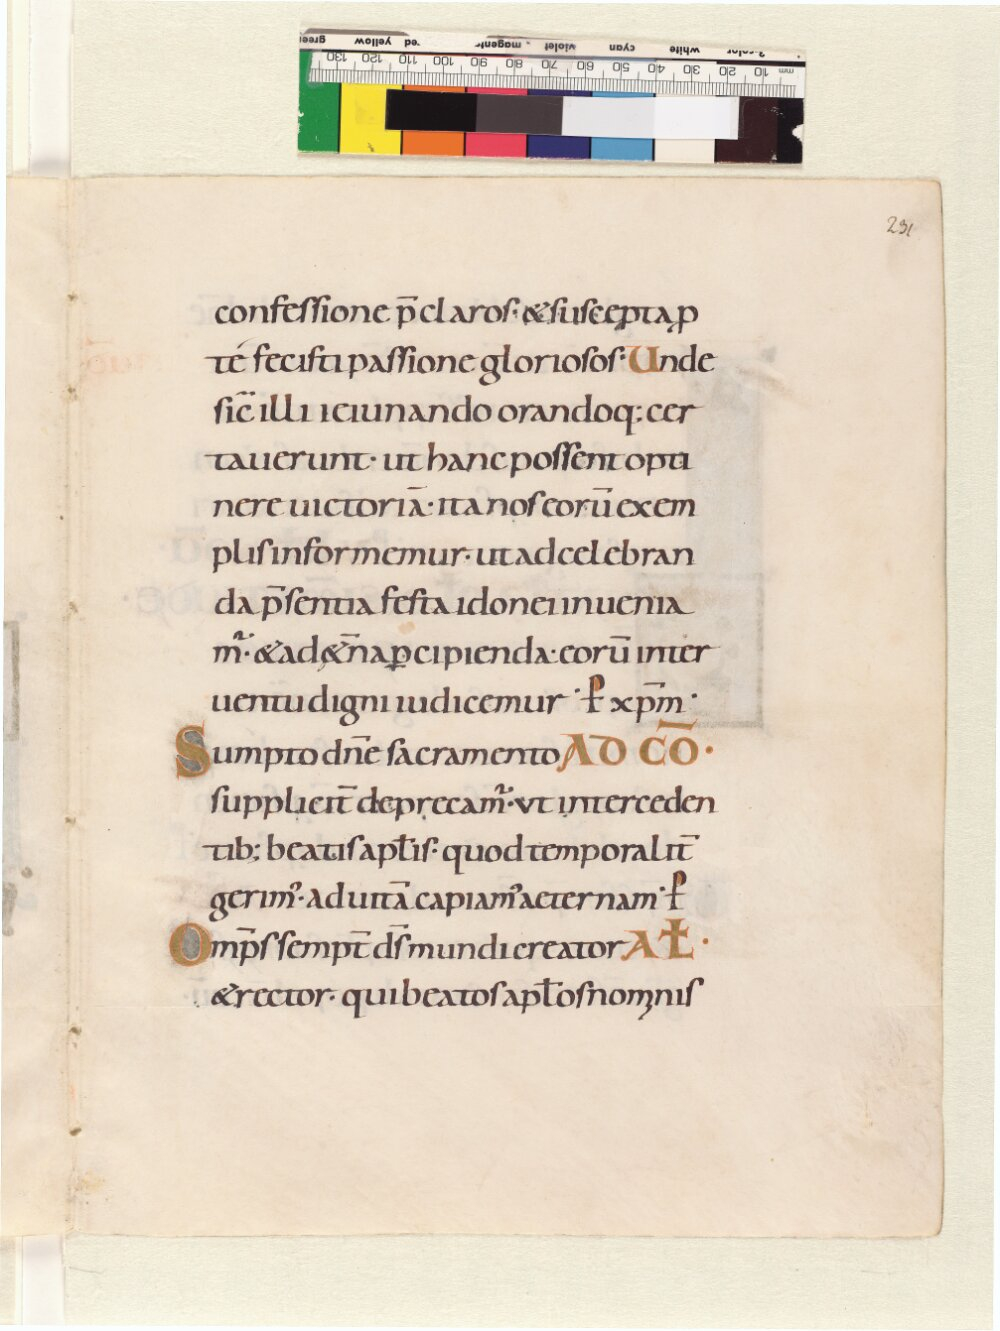 green yellow red magenta violet cyan white 3-color
130 120 110 100 90 80 70 60 50 40 30 20 10 mm
231
confessione p̄claros· & suscepta p
té fecisti passione gloriosos· Unde
sic̄ illi ieiunando orandoq; cer
tauerunt· ut hanc possent opti
nere uictoriā· ita nos eorū exem
plis informemur· ut ad celebran
da p̄sentia festa idonei inuenia
m᷑· & ad &̄na ꝑcipienda· eorū inter
uentu digni iudicemur· P̄ xp̄m·
Sumpto dn̄e sacramento AD CŌ·
supplicit̄ deprecam᷑· ut interceden
tib; beatis apt̄is· quod temporalit̄
gerim᾽· ad uitā capiam᾽ aeternam· P̄
Omp̄s sempt̄ ds̄ mundi creator A̅L̅·
& rector· qui beatos apt̄os nominis